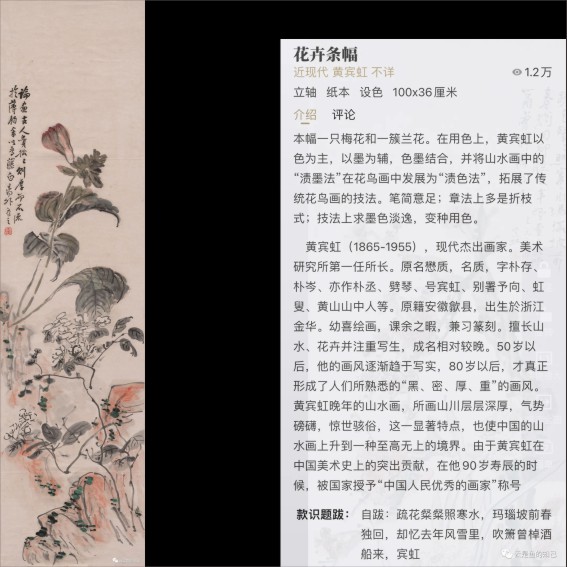 花卉条幅
近现代 黄宾虹 不详
1.2万
立轴 纸本 设色 100x36厘米
介绍 评论
本幅一只梅花和一簇兰花。在用色上，黄宾虹以
色为主，以墨为辅，色墨结合，并将山水画中的
“渍墨法”在花鸟画中发展为“渍色法”，拓展了传
统花鸟画的技法。笔简意足；章法上多是折枝
式；技法上求墨色淡逸，变种用色。
黄宾虹（1865-1955），现代杰出画家。美术
研究所第一任所长。原名懋质，名质，字朴存、
朴岑、亦作朴丞、劈琴、号宾虹、别署予向、虹
叟、黄山山中人等。原籍安徽歙县，出生於浙江
金华。幼喜绘画，课余之暇，兼习篆刻。擅长山
水、花卉并注重写生，成名相对较晚。50岁以
后，他的画风逐渐趋于写实，80岁以后，才真正
形成了人们所熟悉的“黑、密、厚、重”的画风。
黄宾虹晚年的山水画，所画山川层层深厚，气势
磅礴，惊世骇俗，这一显著特点，也使中国的山
水画上升到一种至高无上的境界。由于黄宾虹在
中国美术史上的突出贡献，在他90岁寿辰的时
候，被国家授予“中国人民优秀的画家”称号
款识题跋： 自跋：疏花粲粲照寒水，玛瑙坡前春
独回，却忆去年风雪里，吹箫曾棹酒
船来，宾虹